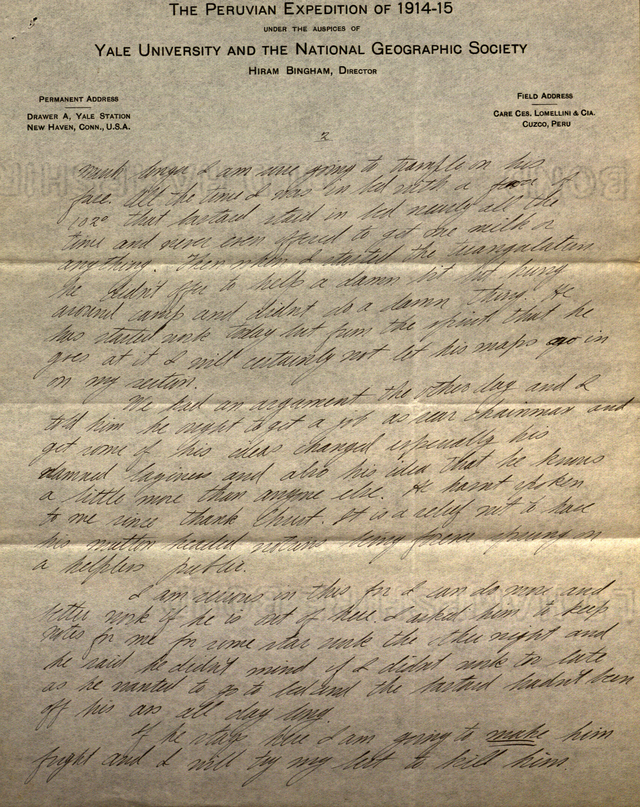 THE PERUVIAN EXPEDITION OF 1914-15
UNDER THE AUSPICES OF
YALE UNIVERSITY AND THE NATIONAL GEOGRAPHIC SOCIETY
HIRAM BINGHAM, DIRECTOR
PERMANENT ADDRESS
DRAWER A, YALE STATION
NEW HAVEN, CONN., U.S.A.
FIELD ADDRESS
CARE CES. LOMELLINI & CIA.
CUZCO, PERU
2
much longer I am sure going to trample on his
face. All the time I was in bed with a of
102° that bastard staid in bed nearly all the
time and never even offered to get me milk or
anything. Then when I started the triangulation
he didn't offer to help a damn bit but hung
around camp and didn't do a damn thing. He
has started work today but from the spirit that he
goes at it I will certainly not let his maps go in
on my section.
We had an argument the other day and I
told him he ought to get a job as rear chainman and
get some of his ideas changed especially his
damned laziness and also his idea that he knows
a little more than anyone else. He hasnt spoken
to me since thank Christ. It is a relief not to have
his mutton headed notions being sprung on
a helpless public.
I am serious in this for I can do more and
better work if he is out of here. I asked him to keep
notes for me for some star work the other night and
he said he didn't mind if I didn't work too late
as he wanted to go to bed and the bastard hadn't been
off his ass all day long.
If he stays here I am going to make him
fight and I will try my best to kill him